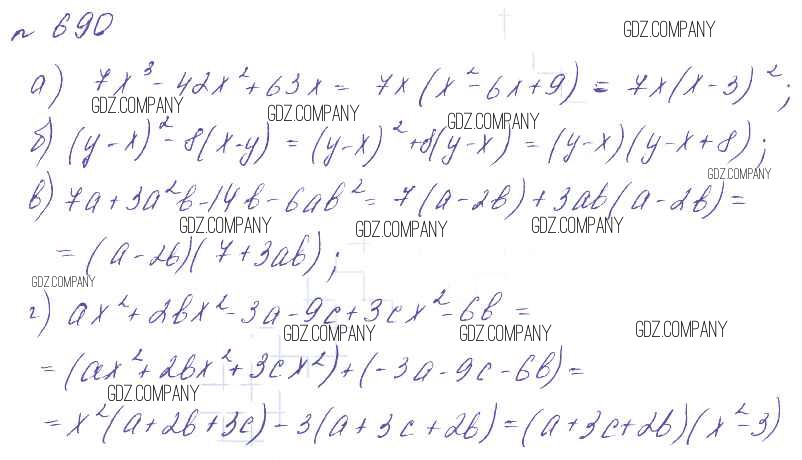 № 690
GDZ.COMPANY
а) 7x³ - 42x² + 63x = 7x(x² - 6x + 9) = 7x(x - 3)²;
GDZ.COMPANY GDZ.COMPANY GDZ.COMPANY
б) (y - x)² - 8(x - y) = (y - x)² + 8(y - x) = (y - x)(y - x + 8);
GDZ.COMPANY
в) 7a + 3a²b - 14b - 6ab² = 7(a - 2b) + 3ab(a - 2b) =
GDZ.COMPANY GDZ.COMPANY GDZ.COMPANY
= (a - 2b)(7 + 3ab);
GDZ.COMPANY
г) ax² + 2bx² - 3a - 9c + 3cx² - 6b =
GDZ.COMPANY GDZ.COMPANY GDZ.COMPANY
= (ax² + 2bx² + 3cx²) + (-3a - 9c - 6b) =
GDZ.COMPANY
= x²(a + 2b + 3c) - 3(a + 3c + 2b) = (a + 3c + 2b)(x² - 3)